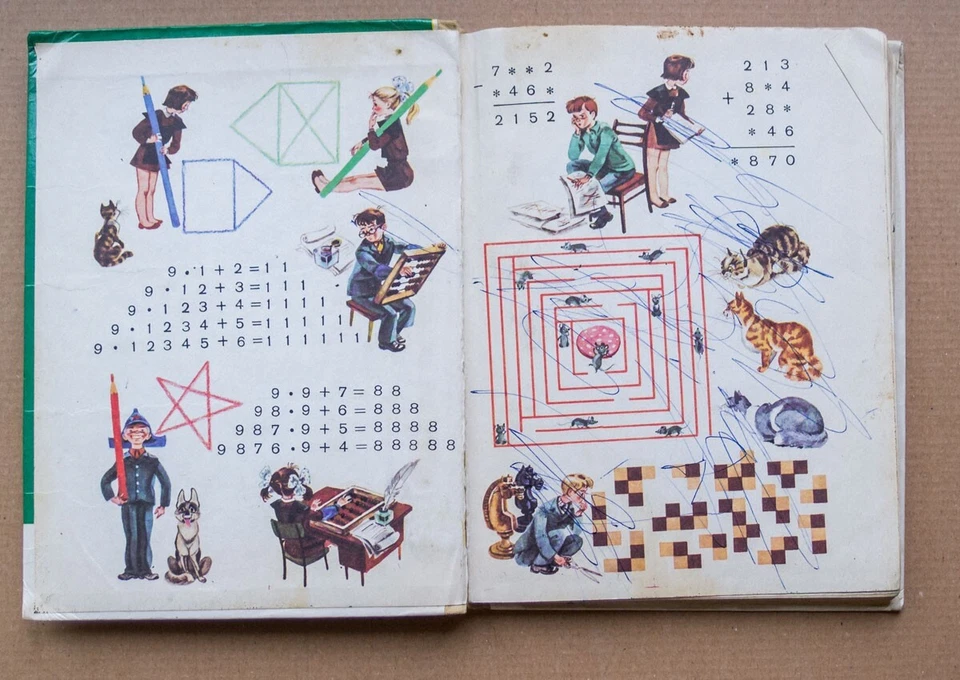 9 · 1 + 2 = 1 1
9 · 1 2 + 3 = 1 1 1
9 · 1 2 3 + 4 = 1 1 1 1
9 · 1 2 3 4 + 5 = 1 1 1 1 1
9 · 1 2 3 4 5 + 6 = 1 1 1 1 1 1
9 · 9 + 7 = 8 8
9 8 · 9 + 6 = 8 8 8
9 8 7 · 9 + 5 = 8 8 8 8
9 8 7 6 · 9 + 4 = 8 8 8 8 8
7 * * 2
- * 4 6 *
2 1 5 2
2 1 3
+ 8 * 4
2 8 *
* 4 6
* 8 7 0